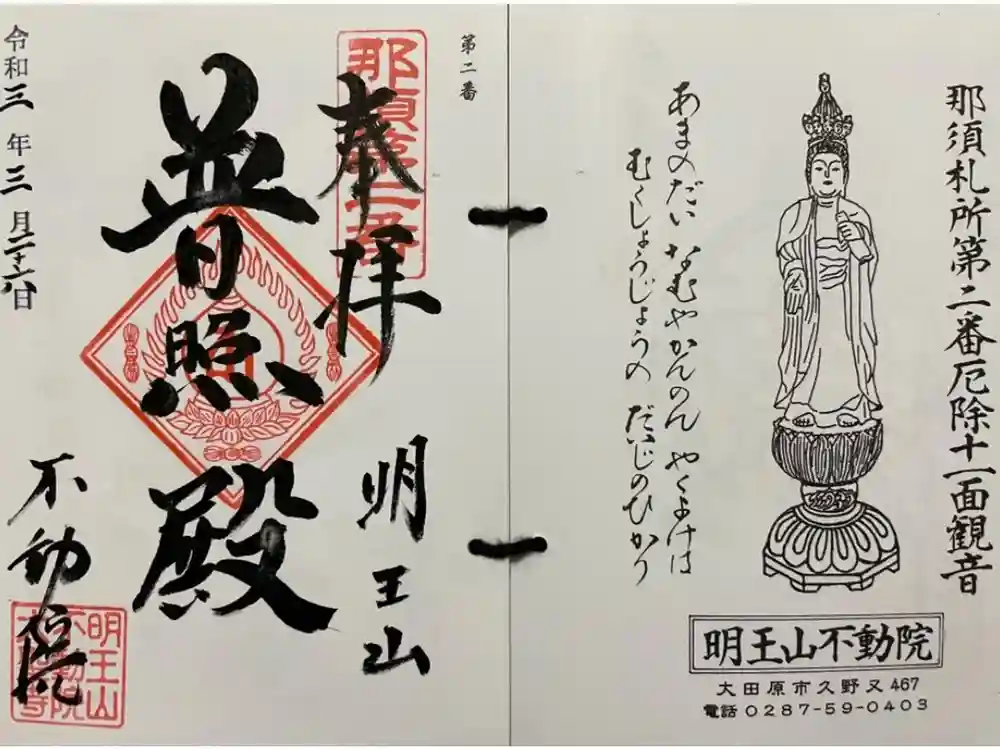 那須札所第二番厄除十一面観音
あまのだい なむやかんのん やくよけは
むくしょうじょうの だいじのひかり
明王山不動院
大田原市久野又467
電話 0287-59-0403
第二番
那須第二番
奉拝
明王山
普照殿
不動院
令和三年三月二十六日
明王山